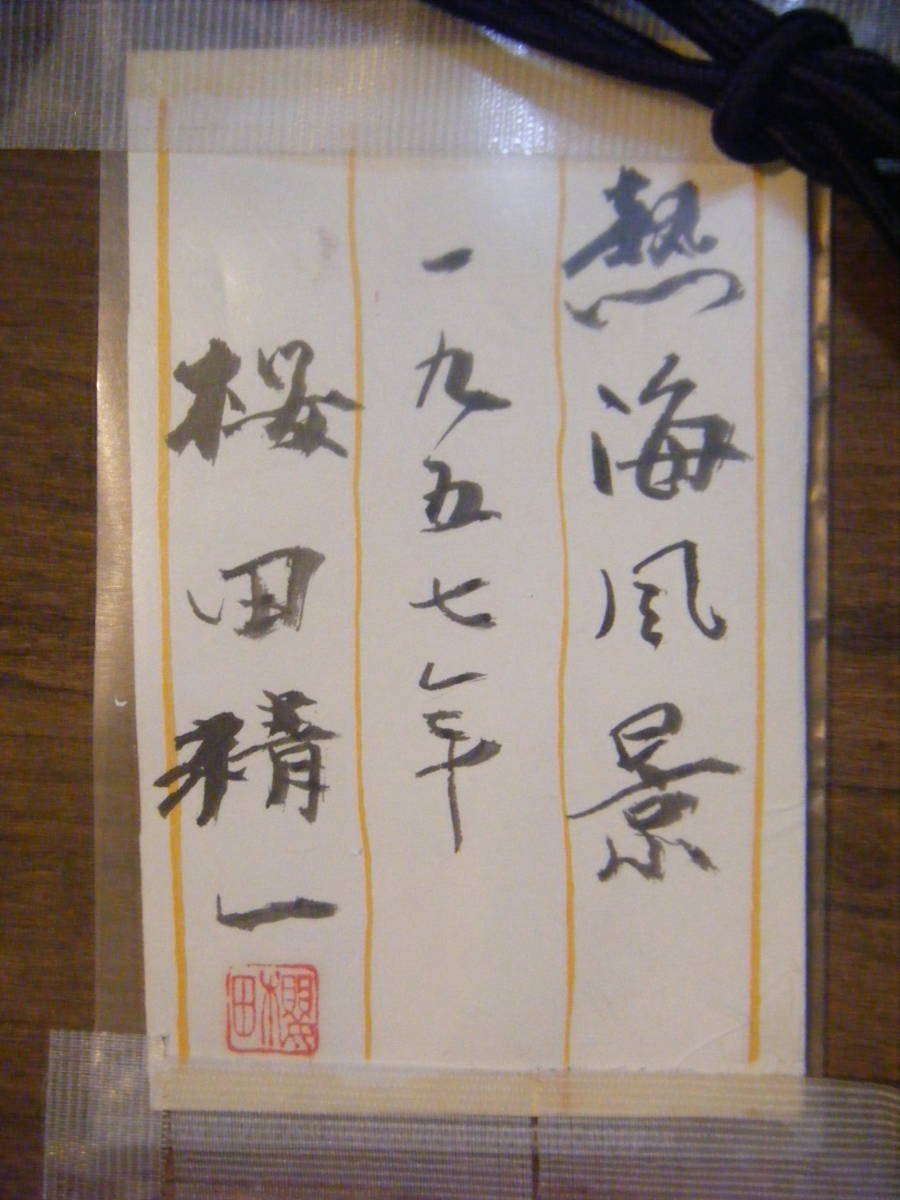 熱海風景
一九五七年
桜田精一
櫻田